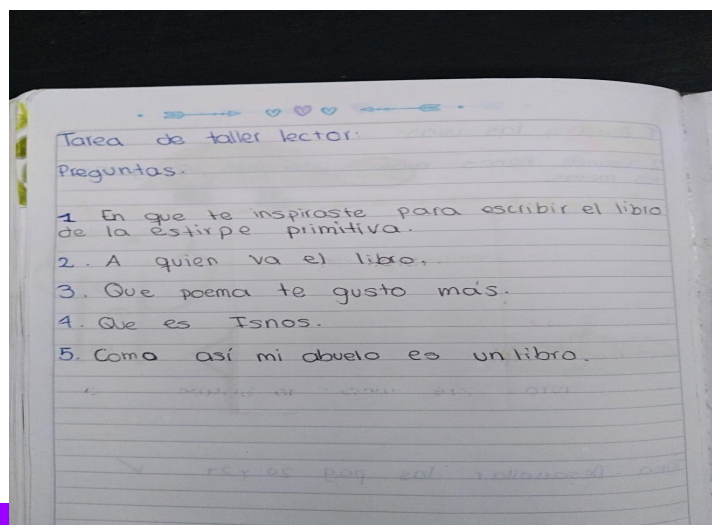 Tarea de taller lector:
Preguntas.
1 En que te inspiraste para escribir el libro
de la estirpe primitiva.
2. A quien va el libro.
3. Que poema te gusto más.
4. Que es Isnos.
5. Como así mi abuelo es un libro.